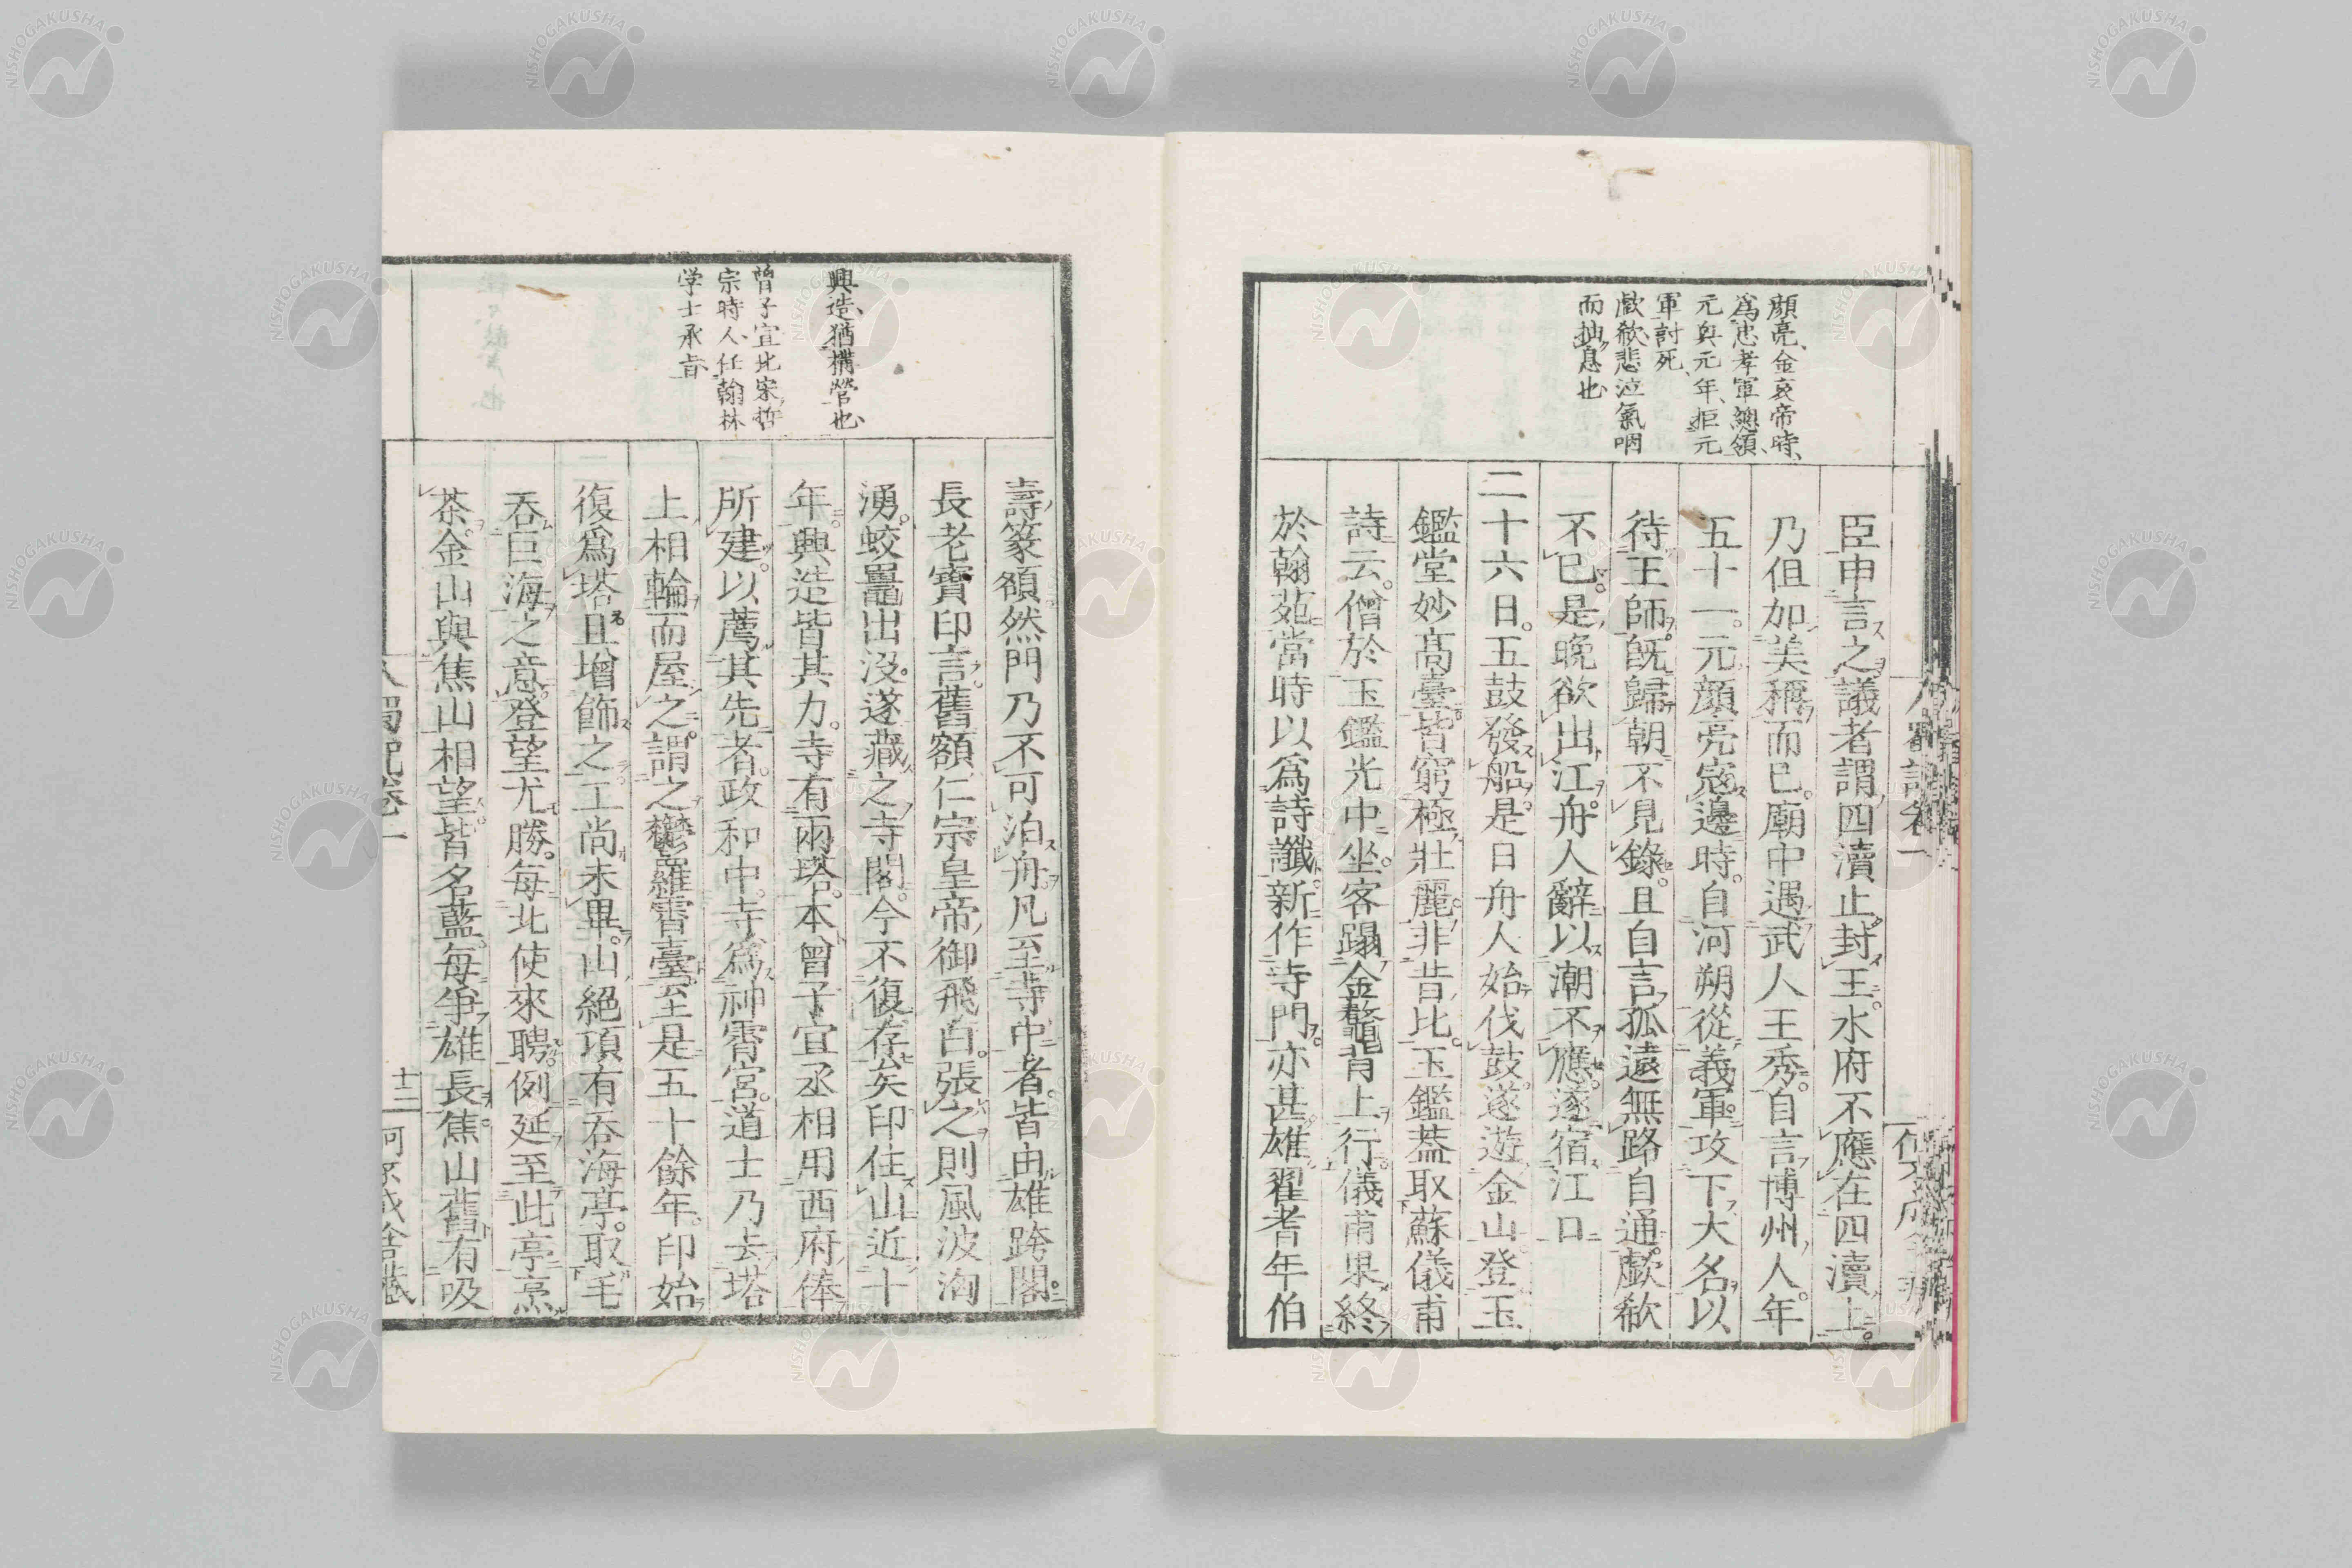 顔亮、金哀帝時、
爲忠孝軍總領、
元興元年、拒元
軍討死、
歔欷、悲泣氣咽
而抽息也
臣申言之議者謂四瀆止封王。水府不應在四瀆上。
乃但加美稱而已。廟中遇武人王秀。自言博州人。年
五十一。元顔亮寇邊時。自河朔從義軍。攻下大名以
待王師。既歸朝不見錄。且自言孤遠無路自通。歔欷
不已。是晚欲出江。舟人辭以潮不應。遂宿江口
二十六日。五鼓發船。是日舟人始伐鼓。遂遊金山登玉
鑑堂妙高臺。皆窮極壯麗。非昔比。玉鑑蓋取蘇儀甫
詩云。僧於玉鑑光中坐。客蹋金鼇背上行。儀甫果終
於翰苑。當時以爲詩讖。新作寺門。亦甚雄。翟耆年伯
興造、猶構營也
曾子宣北宋哲
宗時人、任翰林
学士承旨
壽篆額。然門乃不可泊舟。凡至寺中者。皆由雄跨閣。
長老寶印言。舊額仁宗皇帝御飛白。張之則風波洶
湧。蛟鼉出沒。遂藏之寺閣。今不復存矣。印住山近十
年。興造皆其力。寺有兩塔。本曾子宣丞相用西府俸
所建。以薦其先者。政和中。寺爲神霄宮。道士乃去塔
上相輪而屋之。謂之鬱羅霄臺。至是五十餘年。印始
復爲塔。且增飾之。工尚未畢。山絕項有吞海亭。取毛
吞巨海之意。登望尤勝。每北使來聘。例延至此亭烹
茶。金山與焦山相望。皆名藍。每爭雄長。焦山舊有吸
十二